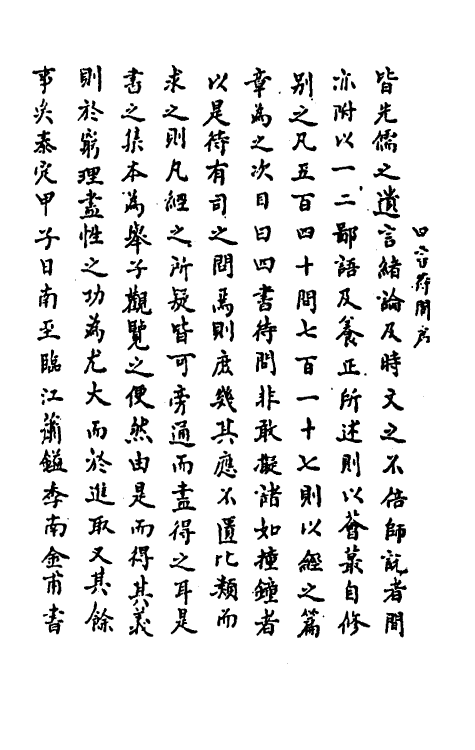 皆先儒之遺言緒論及時文之不倍師說者間
亦附以一二鄙語及養正所述則以薈蕞自修
別之凡五百四十問七百一十七則以經之篇
章為之次目曰四書待問非敢擬諸如撞鐘者
以是待有司之問焉則庶幾其應不匱比類而
求之則凡經之所疑皆可旁通而盡得之耳是
書之集本為舉子觀覽之便然由是而得其義
則於窮理盡性之功為尤大而於進取又其餘
事矣泰定甲子日南至臨江蕭鎰季南金甫書